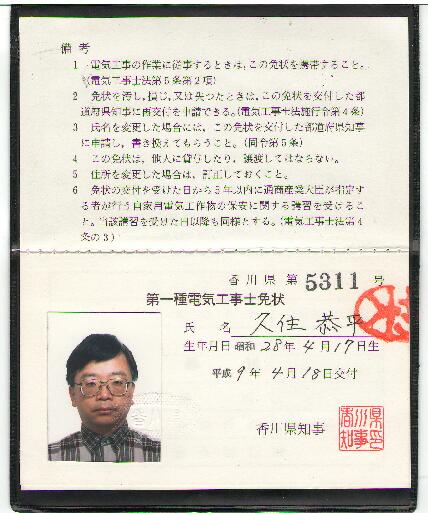 備考
1 電気工事の作業に従事するときは、この免状を携帯すること。
(電気工事士法第5条第2項)
2 免状を汚し、損じ、又は失つたときは、この免状を交付した都
道府県知事に再交付を申請できる。(電気工事士法施行令第4条)
3 氏名を変更した場合には、この免状を交付した都道府県知事
に申請し、書き換えてもらうこと。(同令第5条)
4 この免状は、他人に貸付したり、譲渡してはならない。
5 住所を変更した場合は、訂正しておくこと。
6 免状の交付を受けた日から5年以内に通商産業大臣が指定す
る者が行う自家用電気工作物の保安に関する講習を受けるこ
と。当該講習を受けた日以降も同様とする。(電気工事士法第4
条の3)
香川県 第 5311 号
第一種電気工事士免状
氏名 久住 恭平
生年月日 昭和 28年 4月 17日生
平成 9年 4月 18日交付
香川県知事
香川県
知事印